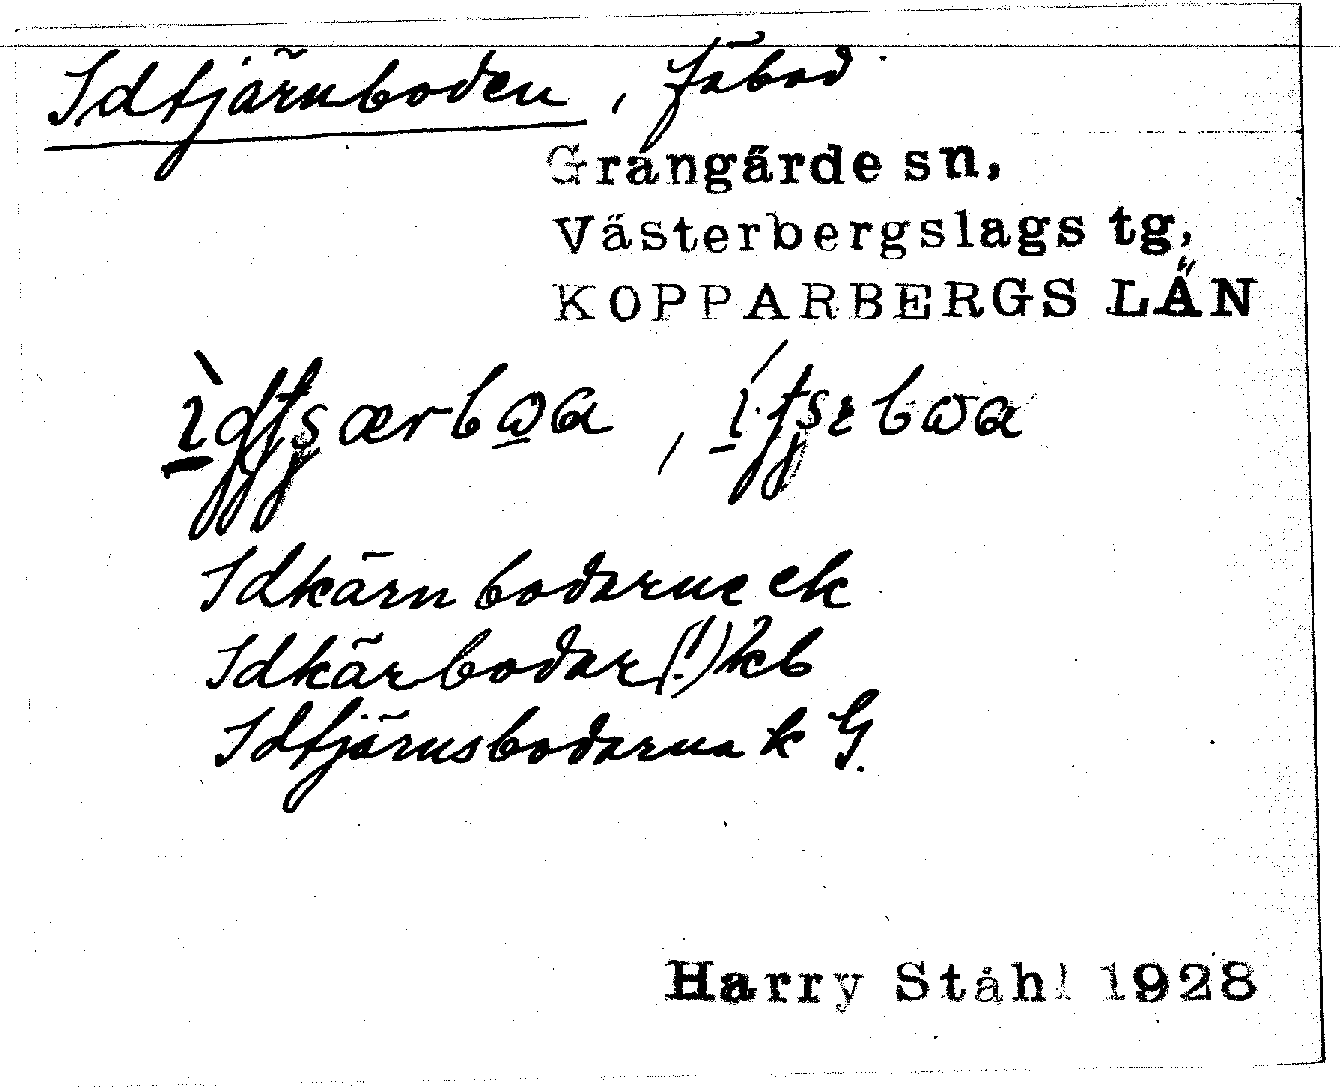 Idtjärnboden, fäbod
Grangärde sn,
Västerbergslags tg,
KOPPARBERGS LÄN
Idkärnbodarne ek
Idkärbodar (!) kb
Idtjärnsbodarna k G.
Harry Ståhl 1928